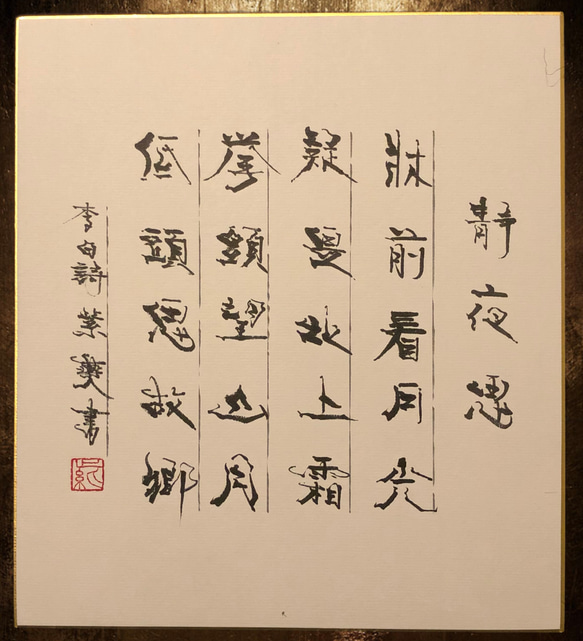 靜夜思
牀前看月光
疑是地上霜
舉頭望山月
低頭思故鄉
李白詩 紫 書